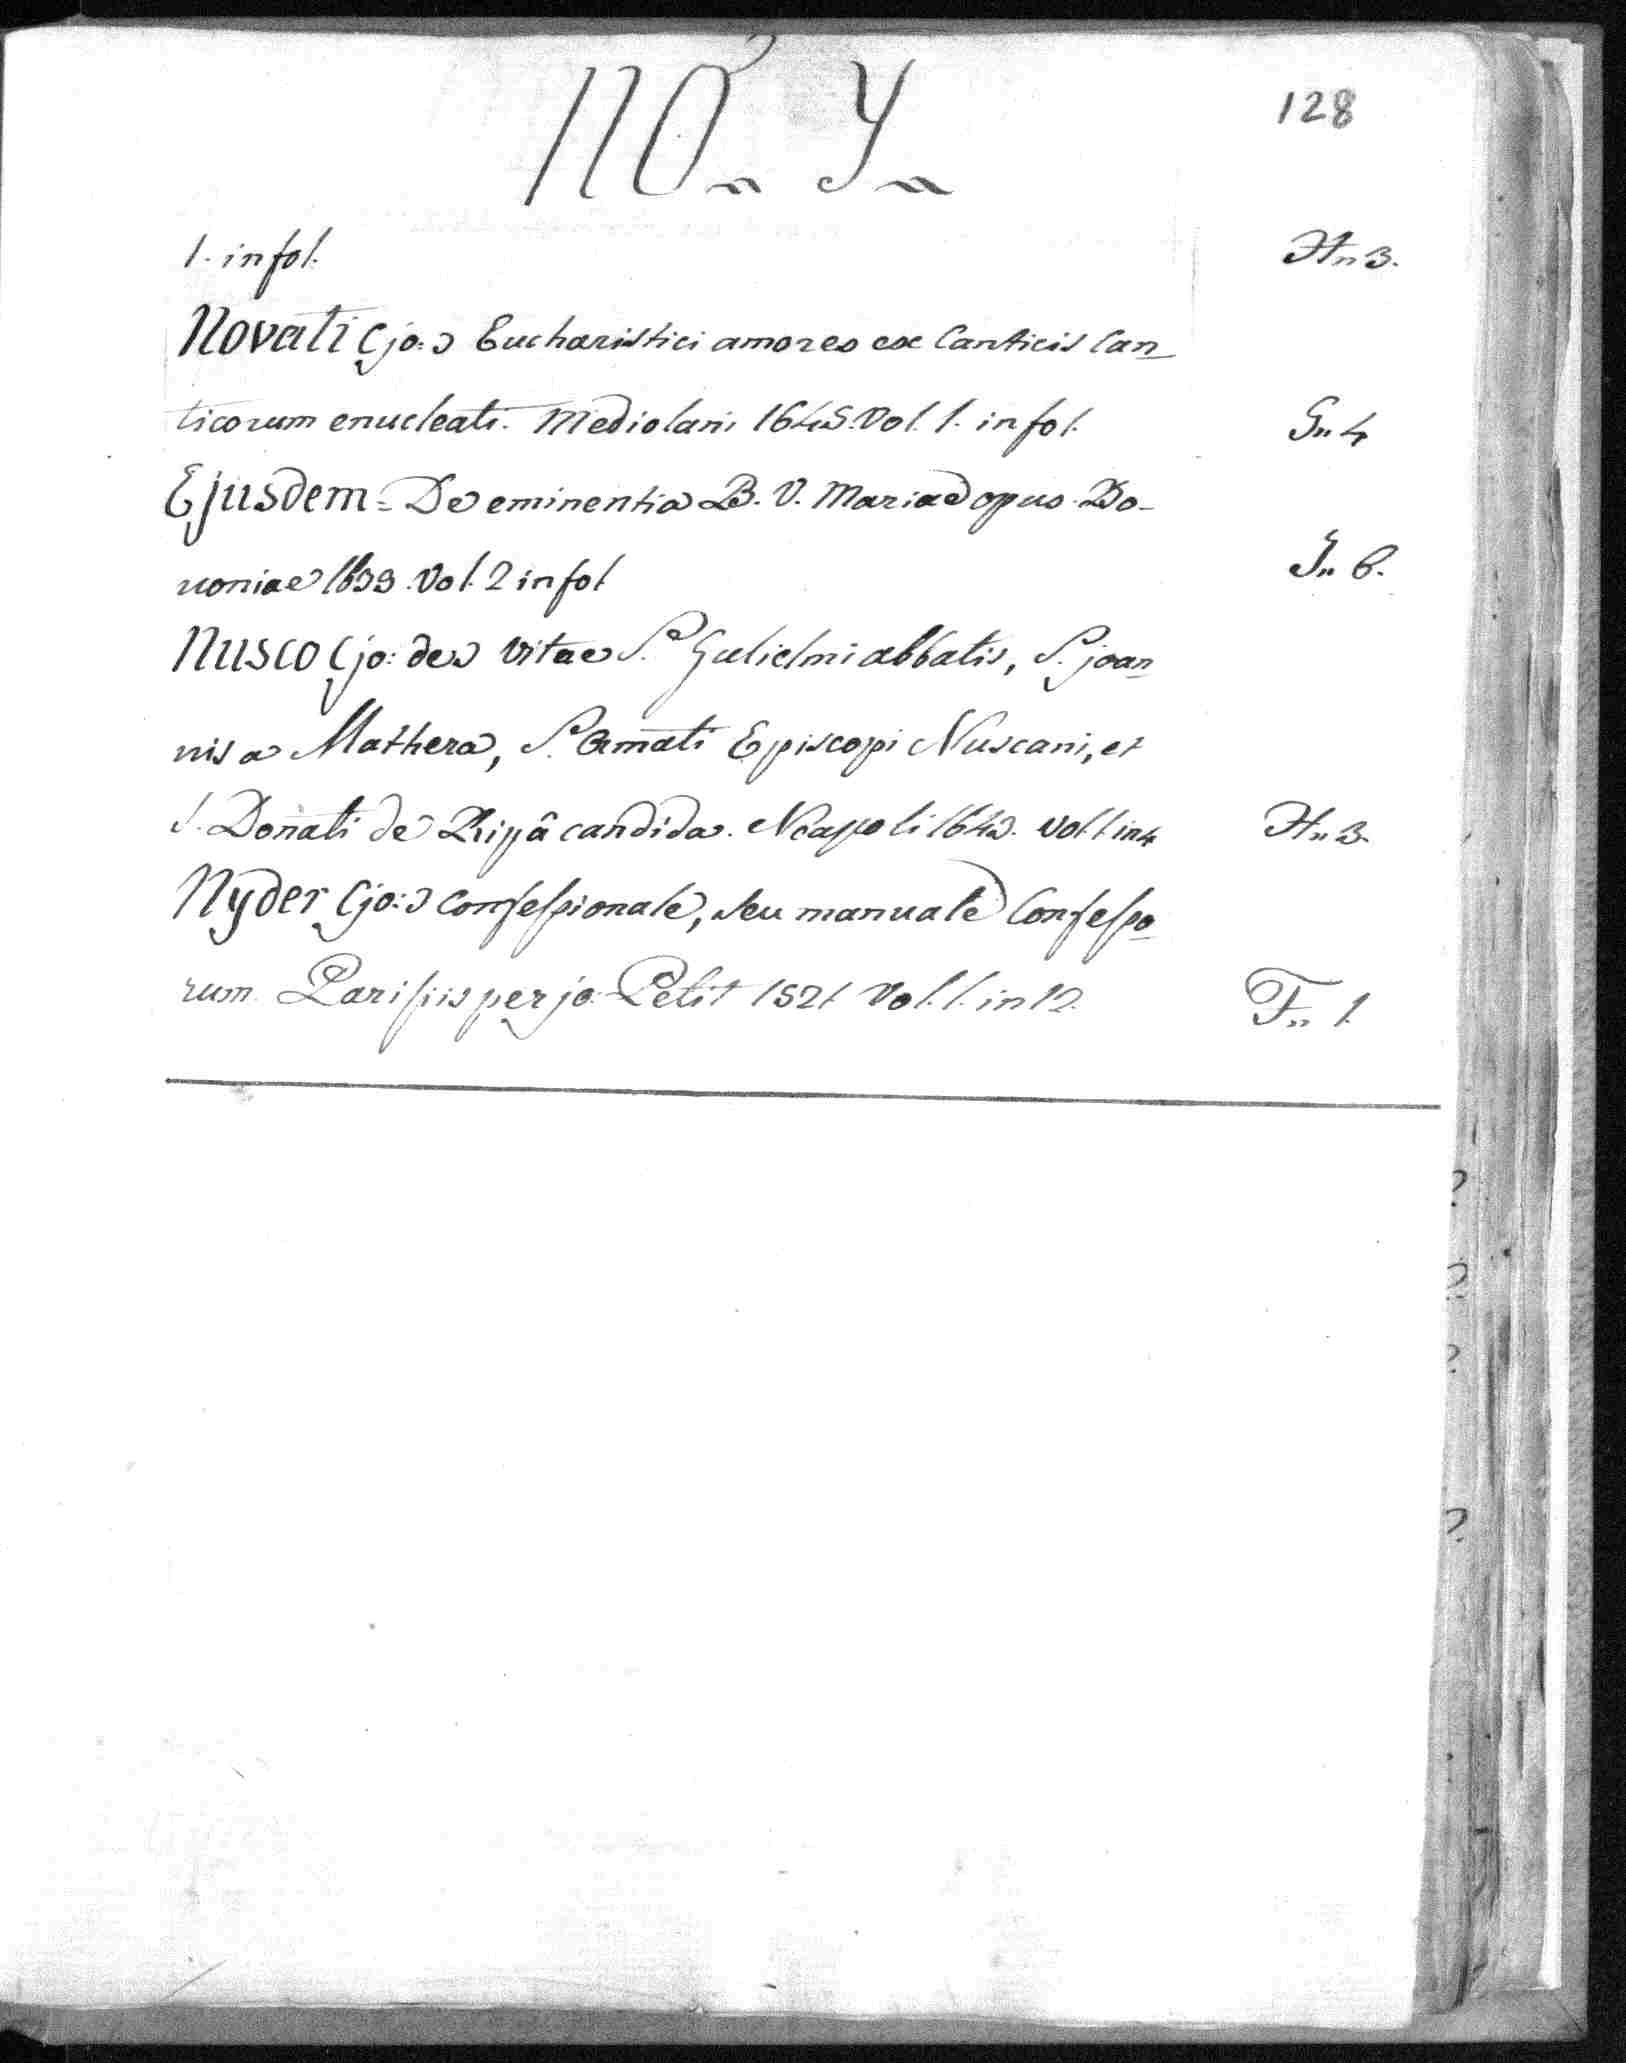 NO„ Y„
128
1. in fol. H„ 3.
Novati (jo:) Eucharistici amores ex Canticis Can
ticorum enucleati. Mediolani 1645. Vol. 1. in fol. G„ 4
Ejusdem = De eminentia B. V. Mariae opus. Bo-
noniae 1639. Vol. 2 in fol I„ 6.
Nusco (jo: de) Vitae S. Gulielmi abbatis, S. joan
nis a Mathera, S. Amati Episcopi Nuscani, et
S. Donati de Ripâ candida. Neapoli 1643. vol 1 in 4 H„ 3.
Nyder (jo:) confessionale, seu manuale Confesso
rum. Parisiis per jo: Petit 1521 Vol. 1. in 12. F„ 1.